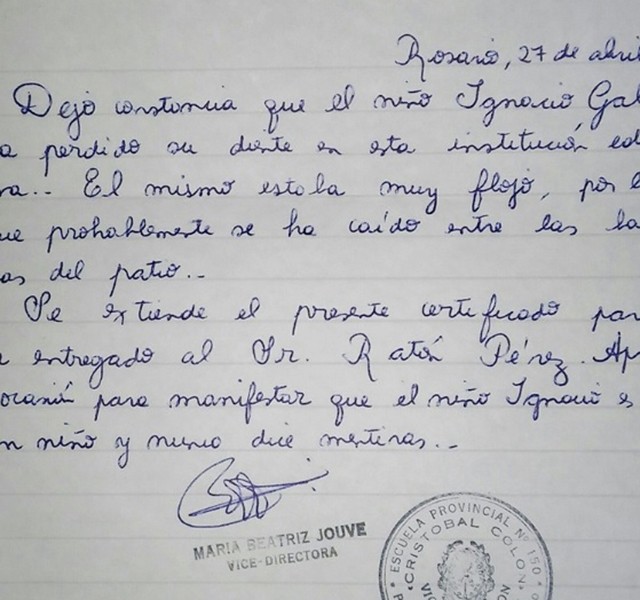 Rosario, 27 de abril
Dejo constancia que el niño Ignacio Gal
a perdido su diente en esta institución ed
va.. El mismo estaba muy flojo, por l
ue probablemente se ha caído entre las ba
as del patio..
Se extiende el presente certificado par
entregado al Sr. Ratón Pérez. Ap
ocasión para manifestar que el niño Ignacio es
n niño y nunca dice mentiras..
MARIA BEATRIZ JOUVE
VICE-DIRECTORA
ESCUELA PROVINCIAL Nº 150
CRISTOBAL COLON